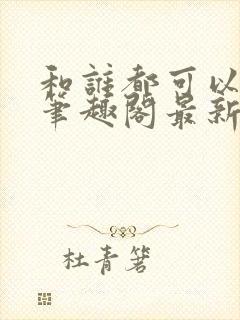 和誰都可以
筆趣閣最新
杜青箬